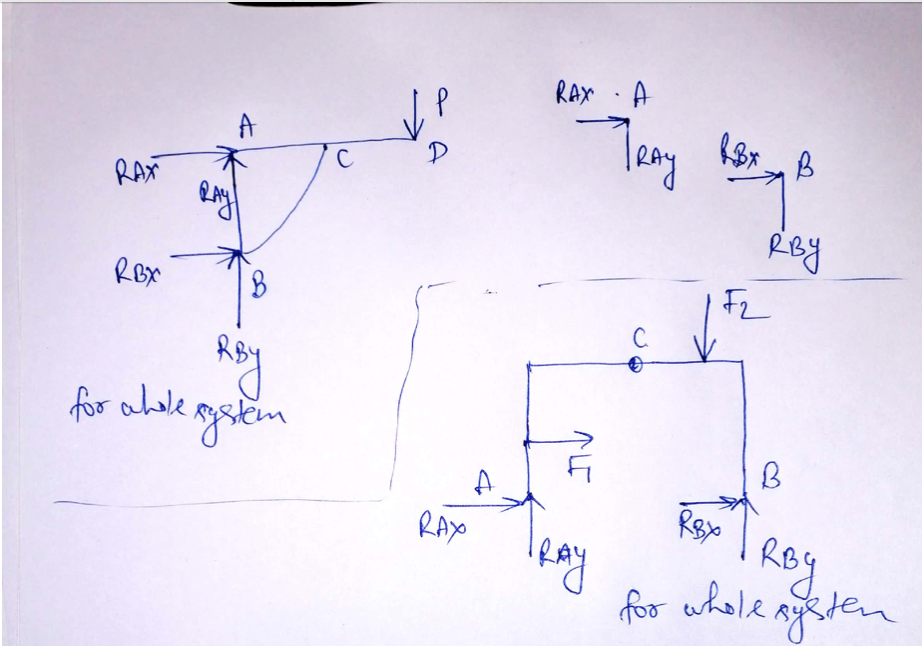 A
P
RAX
C
D
RAy
RBX
B
RBy
for whole system
RAX
A
RAy
RBx
B
RBy
F2
C
F1
A
B
RAX
RBX
RAy
RBy
for whole system